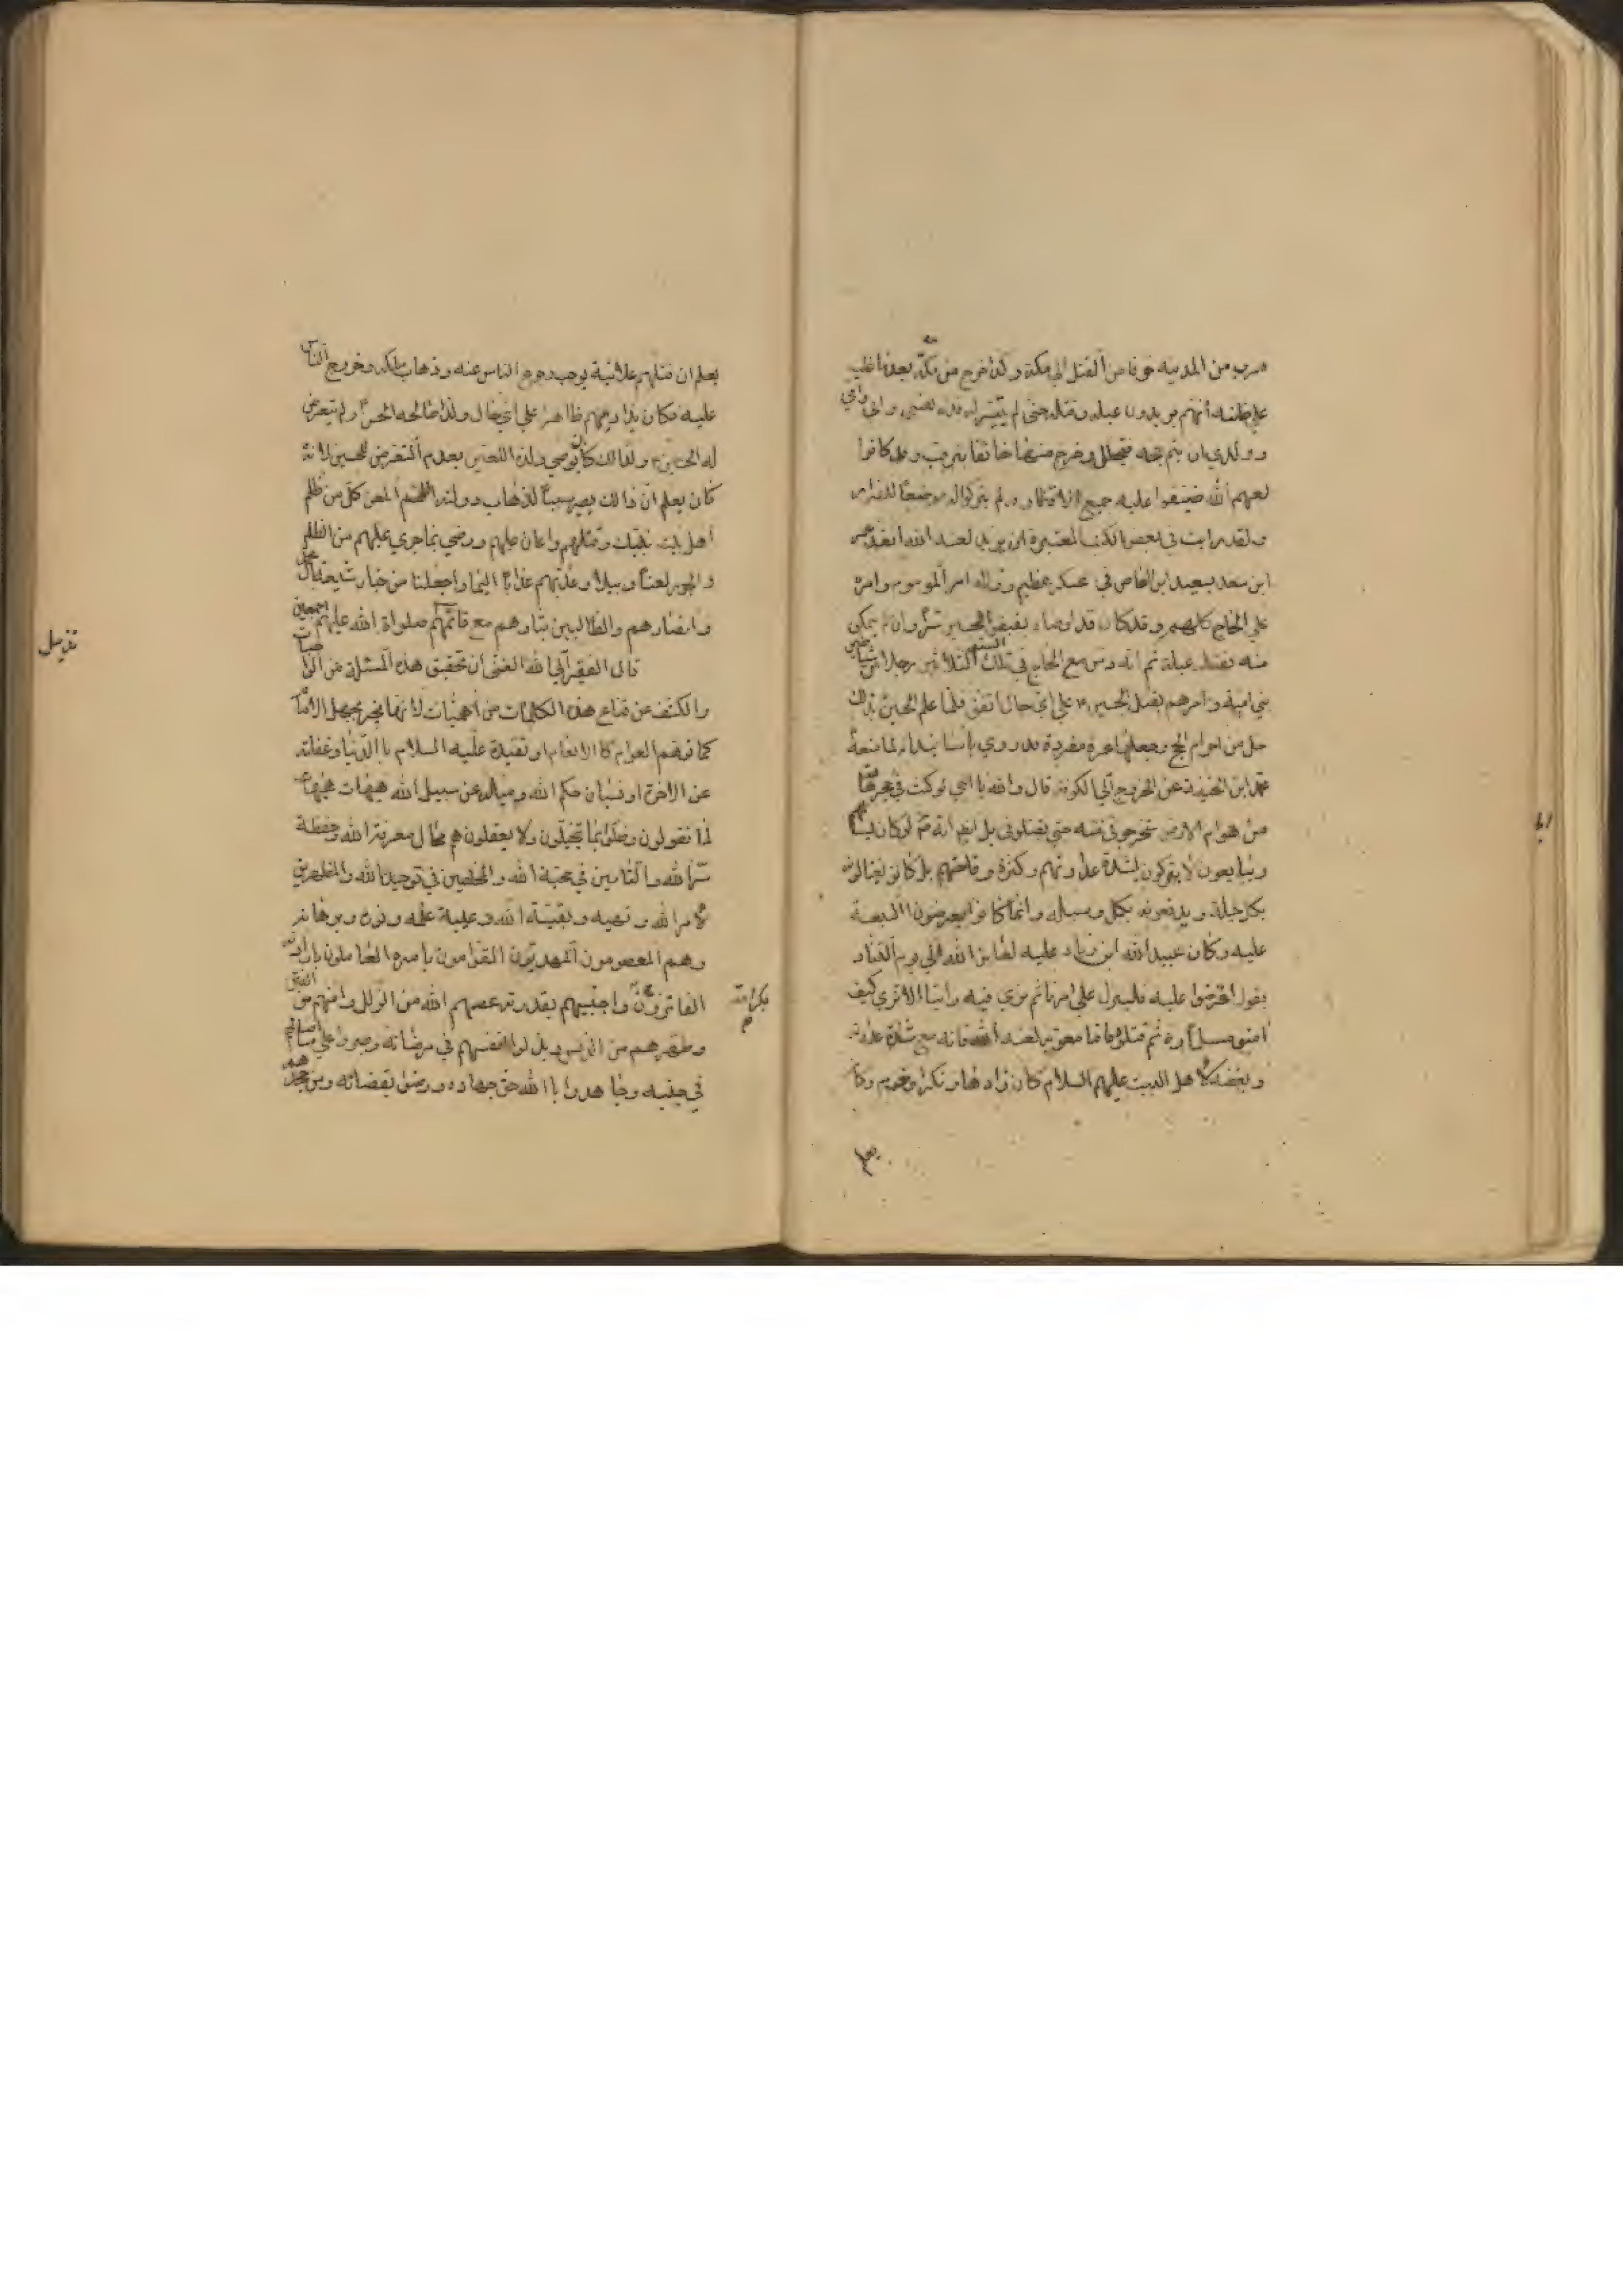 هرب من المدينه خوفا من القتل الى مكة وكذا خرج من مكة بعد ما غلب
على ظنه انهم يريدون غيلته وقتله حتى لم يتيسر له فداه نفسي وابي وامي
وولدي ان يتم حجه فتحلل وخرج منها خائفا يترقب وقد كانوا
لعنهم الله ضيقوا عليه جميع الاقطار ولم يتركوا له موضعا للفرار
ولقد رايت في بعض الكتب المعتبرة ان يزيد لعنه الله انفذ عمر
ابن سعد بن العاص في عسكر عظيم وولاه امر الموسم وامره
على الحاج كلهم وقد كان قد اوصاه بقبض الحسين سرا وان لم يتمكن
منه بقتله غيلة ثم انه دس مع الحاج في تلك السنة ثلاثين رجلا من شياطين
بني امية وامرهم بقتل الحسين ع على اي حال اتفق فلما علم الحسين بذلك
حل من احرام الحج وجعلها عمرة مفردة وقد روي باسانيد انه لما منعه
محمد ابن الحنفية عن الخروج الى الكوفة قال والله يا اخي لو كنت في حجر هامة
من هوام الارض لاستخرجوني منه حتى يقتلوني بل الظاهر انه لو كان يسالمهم
ويبايعهم لا يتركونه لشدة عداوتهم وكثرة وقاحتهم بل كانوا يغتالونه
بكل حيلة ويدفعونه بكل وسيلة وانما كانوا يعرضون البيعة
عليه وكان عبيد الله ابن زياد عليه لعاين الله الى يوم التناد
يقول اعرضوا عليه فلينزل على امرنا ثم نري فيه راينا الا تري كيف
امنوا مسلما ره ثم قتلوه فاما معويه لعنه الله فانه مع شدة عداوته
وبغضه لاهل البيت عليهم السلام كان ذا دهاء ونكراء وحزم وكان
يعلم
ايها
يعلم ان قتلهم علانية يوجب رجوع الناس عنه وذهاب ملكه وخروج الناس
عليه فكان يداريهم ظاهرا على اي حال ولذا صالحه الحسن ع ولم يتعرض
له الحسين ع ولذلك كان يوصي ولده اللعين بعدم التعرض للحسين لانه
كان يعلم ان ذالك يصير سببا لذهاب دولته اللهم العن كل من ظلم
اهل بيت نبيك وقتلهم واعان عليهم ورضي بما جري عليهم من الظلم
والجور لعنا وبيلا وعذبهم عذابا اليما واجعلنا من خيار شيعة ال محمد
وانصارهم والطالبين بثارهم مع قائمهم صلواة الله عليهم اجمعين
قال الفقير الى الله الغني ان تحقيق هذه المسئلة من الواجبات
والكشف عن قناع هذه الكلمات من اهميات لانها ينجر بجهل الامام
كما توهم العوام كالانعام او تقيده عليه السلام باالدنيا وغفلته
عن الاخرة او نسيان حكم الله وميله عن سبيل الله هيهات هيهات
لما تقولون وضلوا بما يتخيلون ولا يعقلون هم محال معرفة الله وحفظة
سر الله والتامين في محبة الله والمخلصين في توحيد الله والمظهرين
لامر الله ونهيه وبقية الله وعيبة علمه ونوره وبرهانه
وهم المعصومون المهديون القوامون بامره العاملون بارادته
الفائزون بكرامته واجتبيهم بقدرته عصمهم الله من الزلل وامنهم من الفتن
وطهرهم من الدنس وبذلوا انفسهم في مرضاته وصبروا على ما اصابهم
في جنبه وجاهدوا باالله حق جهاده ورضوا بقضائه
تذييل